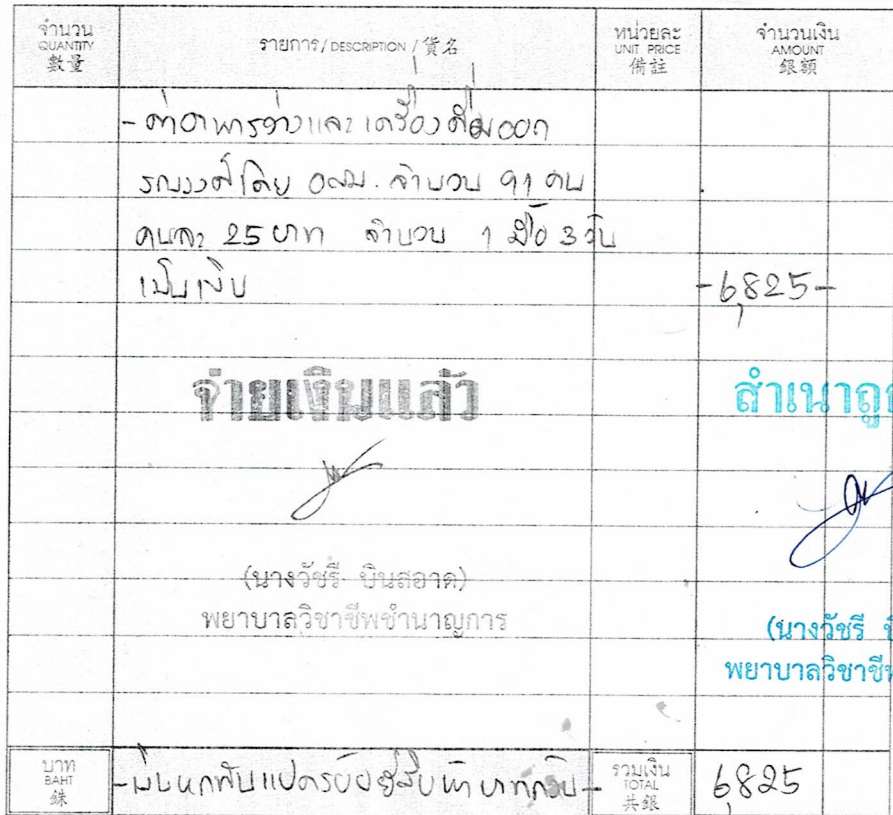 จำนวน QUANTITY 數量 รายการ/DESCRIPTION/貨名 หน่วยละ UNIT PRICE 備註 จำนวนเงิน AMOUNT 銀額
-ค่าอาหารว่างและเครื่องดื่มออก
รณรงค์โดย อสม. จำนวน 91 คน
คนละ 25 บาท จำนวน 1 มื้อ 3 วัน
เป็นเงิน -6,825-
จ่ายเงินแล้ว สำเนาถูก
(นางวัชรี บินสอาด)
พยาบาลวิชาชีพชำนาญการ
(นางวัชรี
พยาบาลวิชาชีพ
บาท BAHT 銖 -เงินหกพันแปดร้อยยี่สิบห้าบาทถ้วน- รวมเงิน TOTAL 共銀 6,825